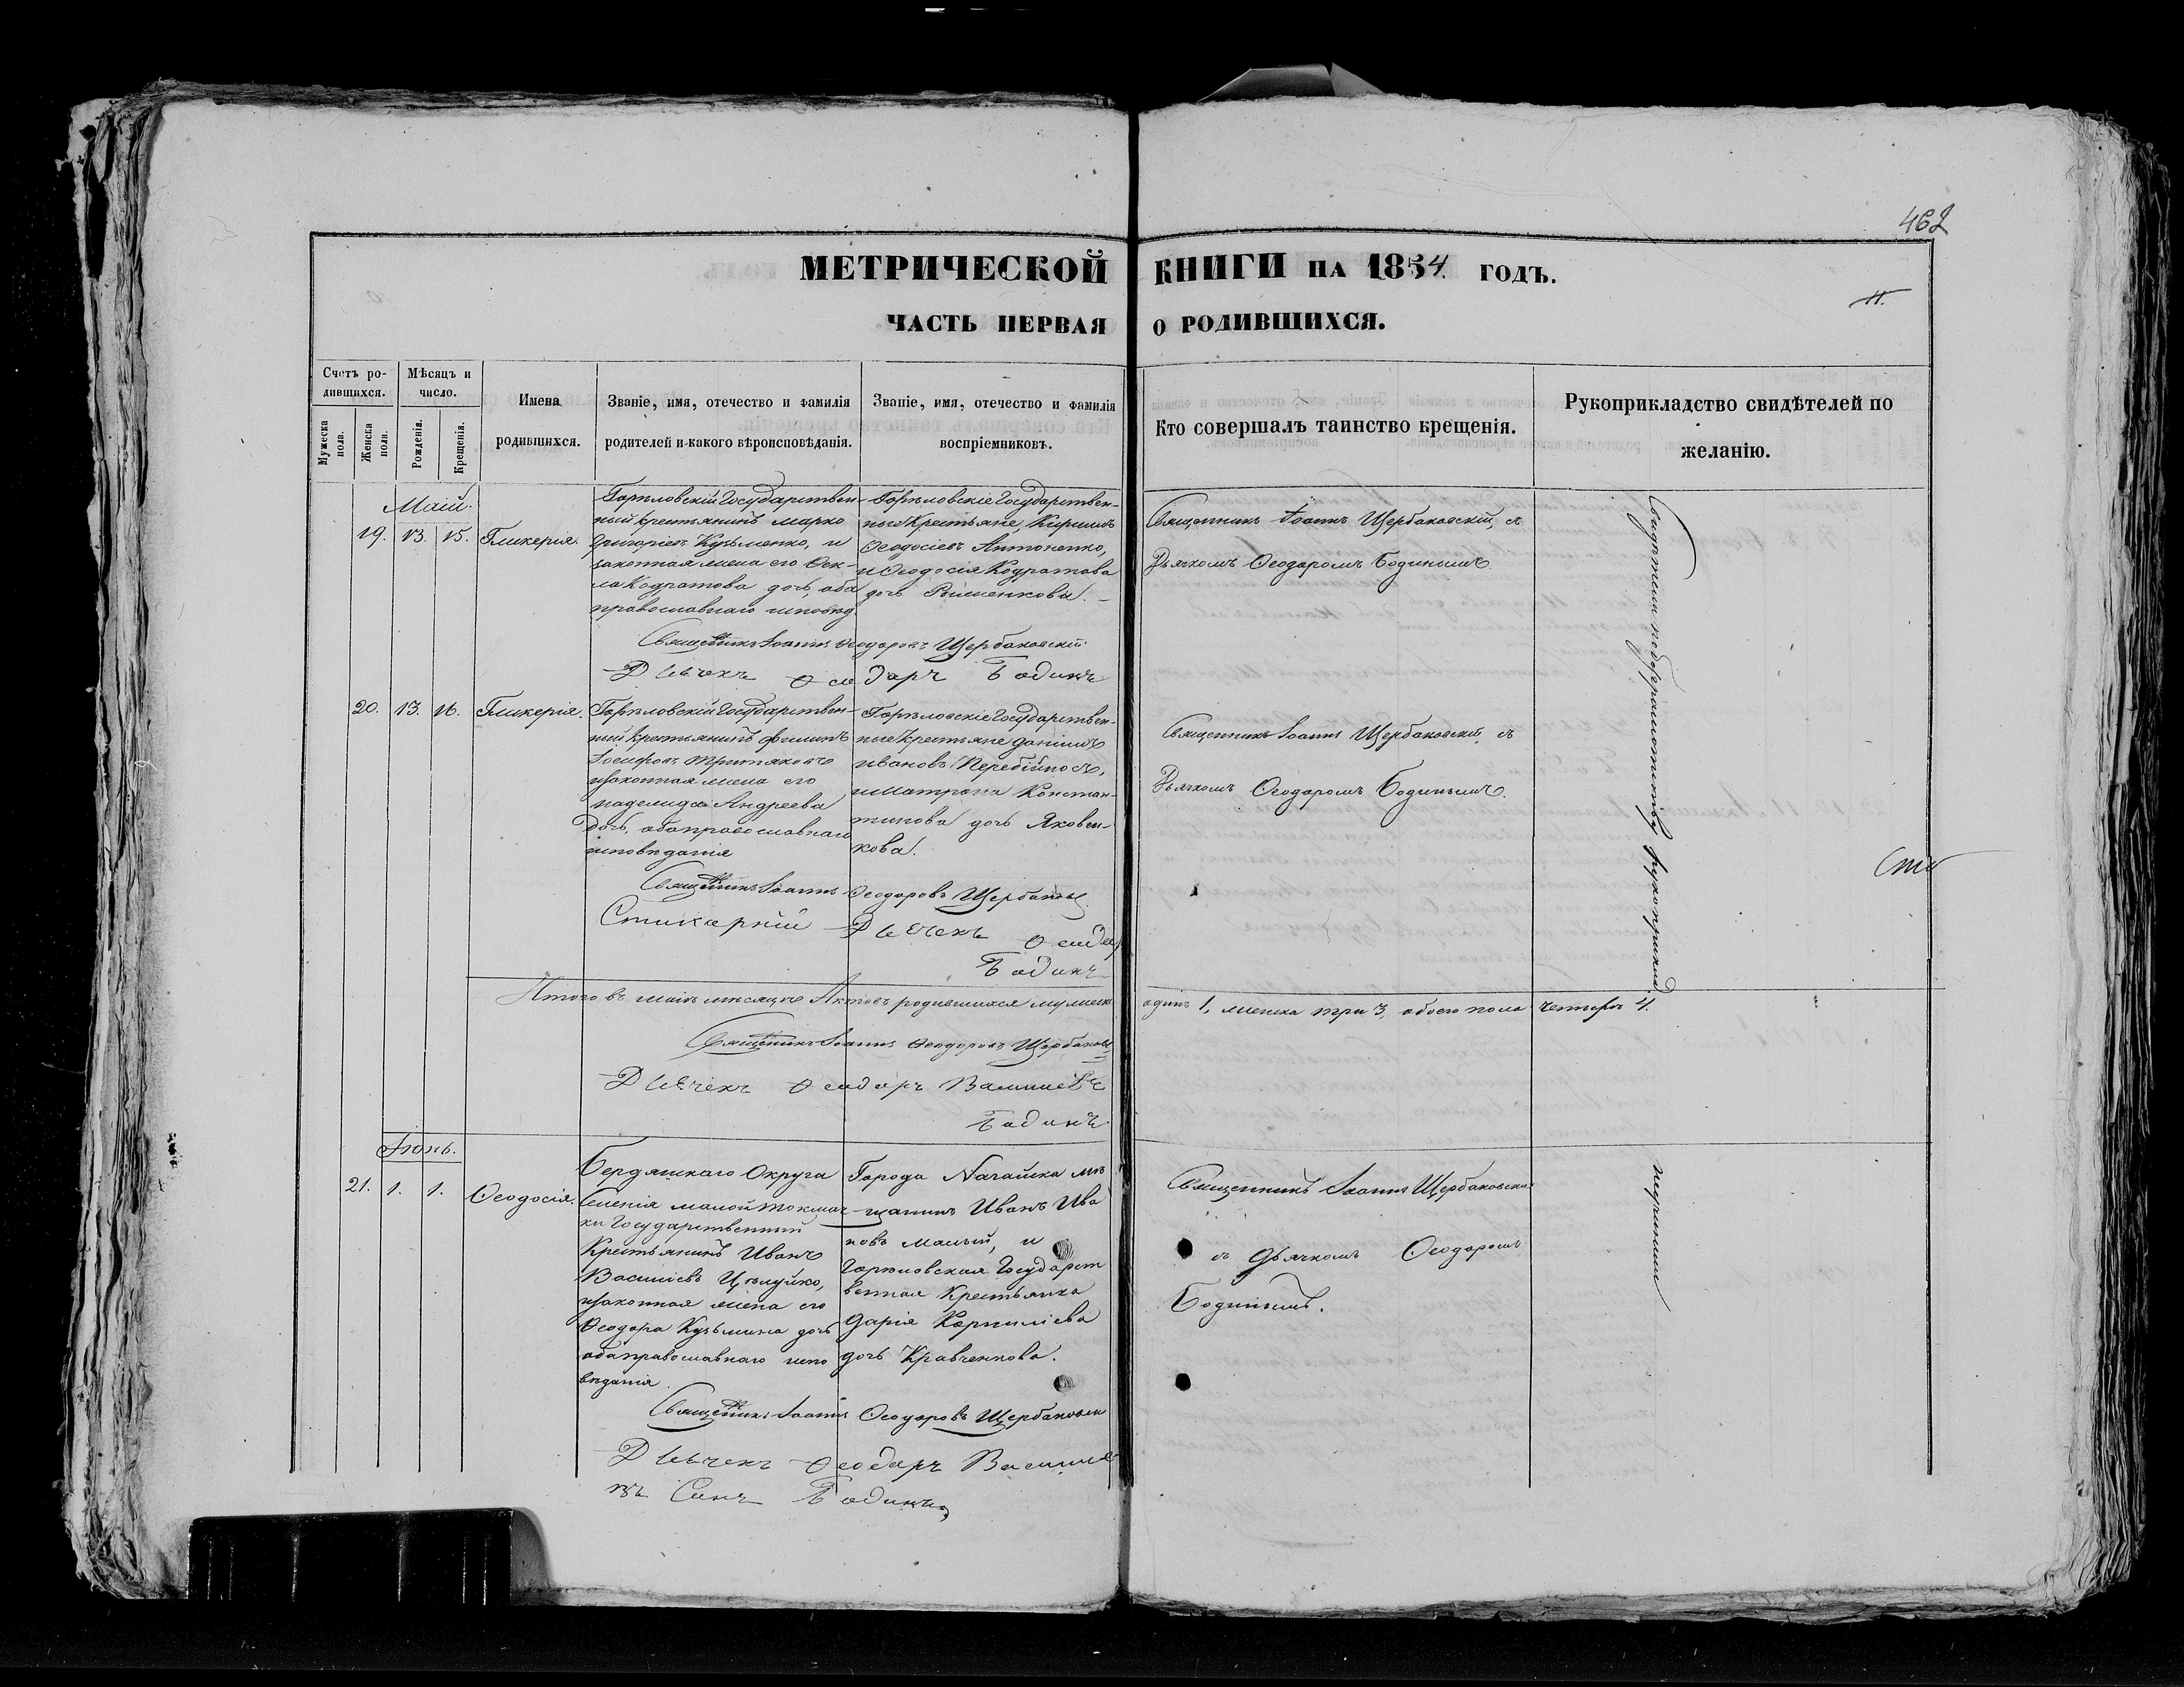 462
МЕТРИЧЕСКОЙ КНИГИ НА 1854. ГОДЪ.
11.
ЧАСТЬ ПЕРВАЯ О РОДИВШИХСЯ.
Счетъ ро-
дившихся.
Мужеска пола.
Женска пола.
Мѣсяцъ и
число.
Рожденія.
Крещенія.
Имена
родившихся.
Званіе, имя, отечество и фамилія
родителей и какого вѣроисповѣданія.
Званіе, имя, отечество и фамилія
воспріемниковъ.
Кто совершалъ таинство крещенія.
Рукоприкладство свидѣтелей по
желанію.
Маій.
19. 13. 15. Гликерія.
Горѣловскій Государствен-
ный крестьянинъ Марко
Григоріевъ Кузьменко, и
законная жена его Ѳек-
ла Кодратова дочь, оба
православнаго исповѣд
Горѣловскіе Государствен-
ные Крестьяне, Кирилъ
Ѳеодосіевъ Антоненко,
и Ѳеодосія Кодратова
дочь
Священникъ Іоаннъ Щербаковскій, съ
Дьячкомъ Ѳеодоромъ Бодинымъ
Священникъ Іоаннъ Ѳеодоровъ Щербаковскій
Дьячекъ Ѳеодоръ Бодинъ
20. 13. 16. Гликерія.
Горѣловскій Государствен-
ный крестьянинъ Филипъ
Іосифовъ Третяковъ
и законная жена его
Андреева
дочь, оба православнаго
исповѣданія
Горѣловскіе Государствен-
ные Крестьяне Даніилъ
Ивановъ Перебійносъ,
и Матрона Констан-
тинова дочь Яковен-
кова.
Священникъ Іоаннъ Щербаковскій, съ
Дьячкомъ Ѳеодоромъ Бодинымъ.
Священникъ Іоаннъ Ѳеодоровъ Щербаковс
Стихарній Дьячекъ Ѳеодор
Бодинъ
Итого въ маіѣ мѣсяцѣ Актовъ родившихся мужеск одинъ 1, женска три 3, обоего пола четыре 4.
Священникъ Іоаннъ Ѳеодоровъ Щербаковс
Дьячекъ Ѳеодоръ Василиевъ
Бодинъ
Іюнь.
21. 1. 1. Ѳеодосія.
Бердянскаго Округа
Селенія малой Токмач
ки Государственный
Крестьянинъ Иванъ
Василіевъ Цѣлуйко,
и законная жена его
Ѳеодора Кузьмина дочь
оба православнаго испо
вѣданія
Города Nагайска мѣ
щанинъ Иванъ Ива
новъ Малый, и
Горѣловская Государст
венная Крестьянка
Дарія Корниліева
дочь Кравченкова.
Священникъ Іоаннъ Щербаковскій
съ Дьячкомъ Ѳеодоромъ
Бодинымъ.
Священникъ Іоаннъ Ѳеодоровъ Щербаковск
Дьячекъ Ѳеодоръ Василие
въ Синъ Бодинъ